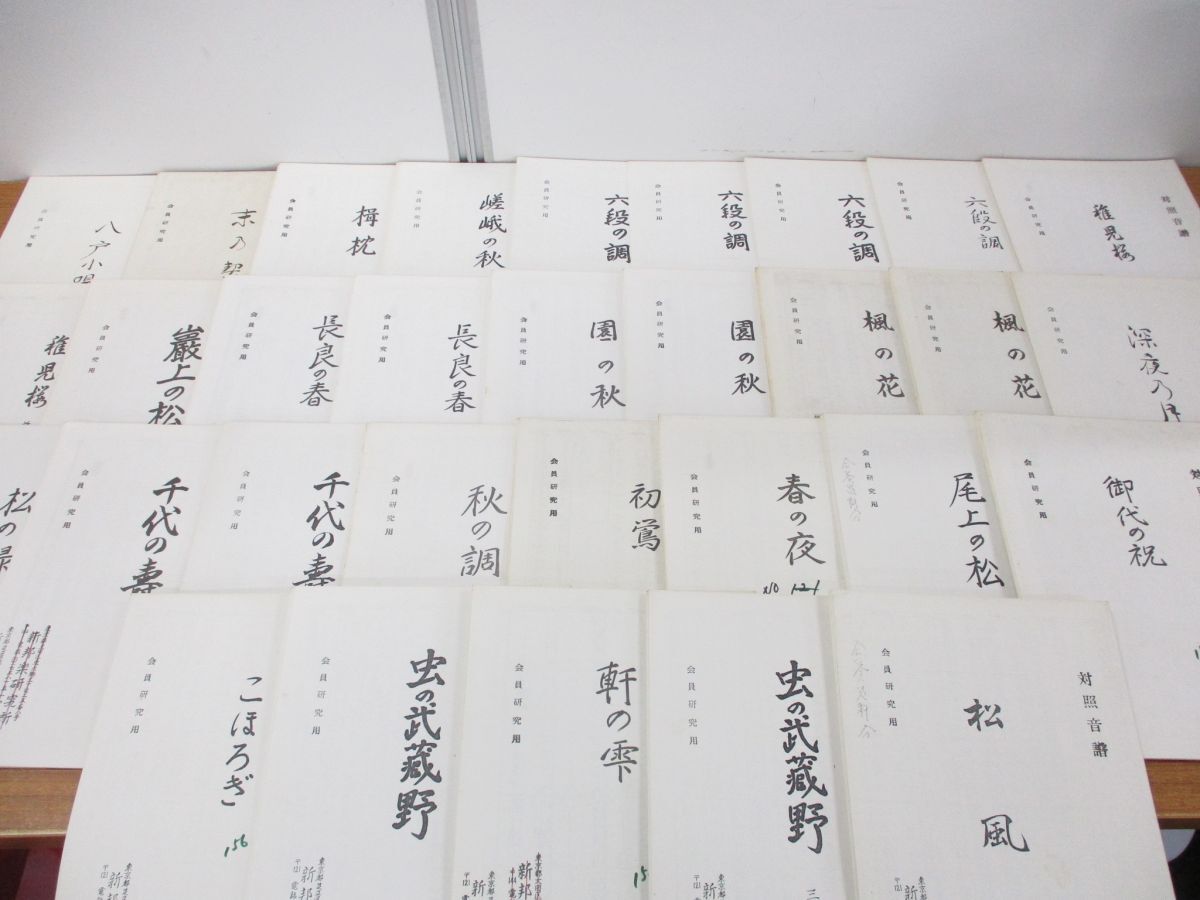 八戸小唄
会員研究用
末の契
会員研究用
楫枕
会員研究用
嵯峨の秋
会員研究用
六段の調
会員研究用
六段の調
会員研究用
六段の調
会員研究用
六段の調
会員研究用
対照音譜
稚児桜
会員研究用
稚児桜
巖上の松
会員研究用
長良の春
会員研究用
長良の春
会員研究用
園の秋
会員研究用
園の秋
会員研究用
楓の花
会員研究用
楓の花
会員研究用
深夜の月
会員研究用
松の緑
千代の壽
会員研究用
新邦楽研究所
千代の壽
会員研究用
秋の調
会員研究用
初鶯
会員研究用
春の夜
会員研究用
尾上の松
会員研究用
対
御代の祝
会員研究用
こほろぎ
会員研究用
156
東京都
新邦
〒121
虫の武蔵野
会員研究用
東京都
新邦
〒121
軒の雫
会員研究用
15
東京都大田
新邦
〒144
東京都
新
〒121
虫の武蔵野
会員研究用
三
東京都
新邦
〒121
対照音譜
松風
会員研究用
東京都
新邦
〒121